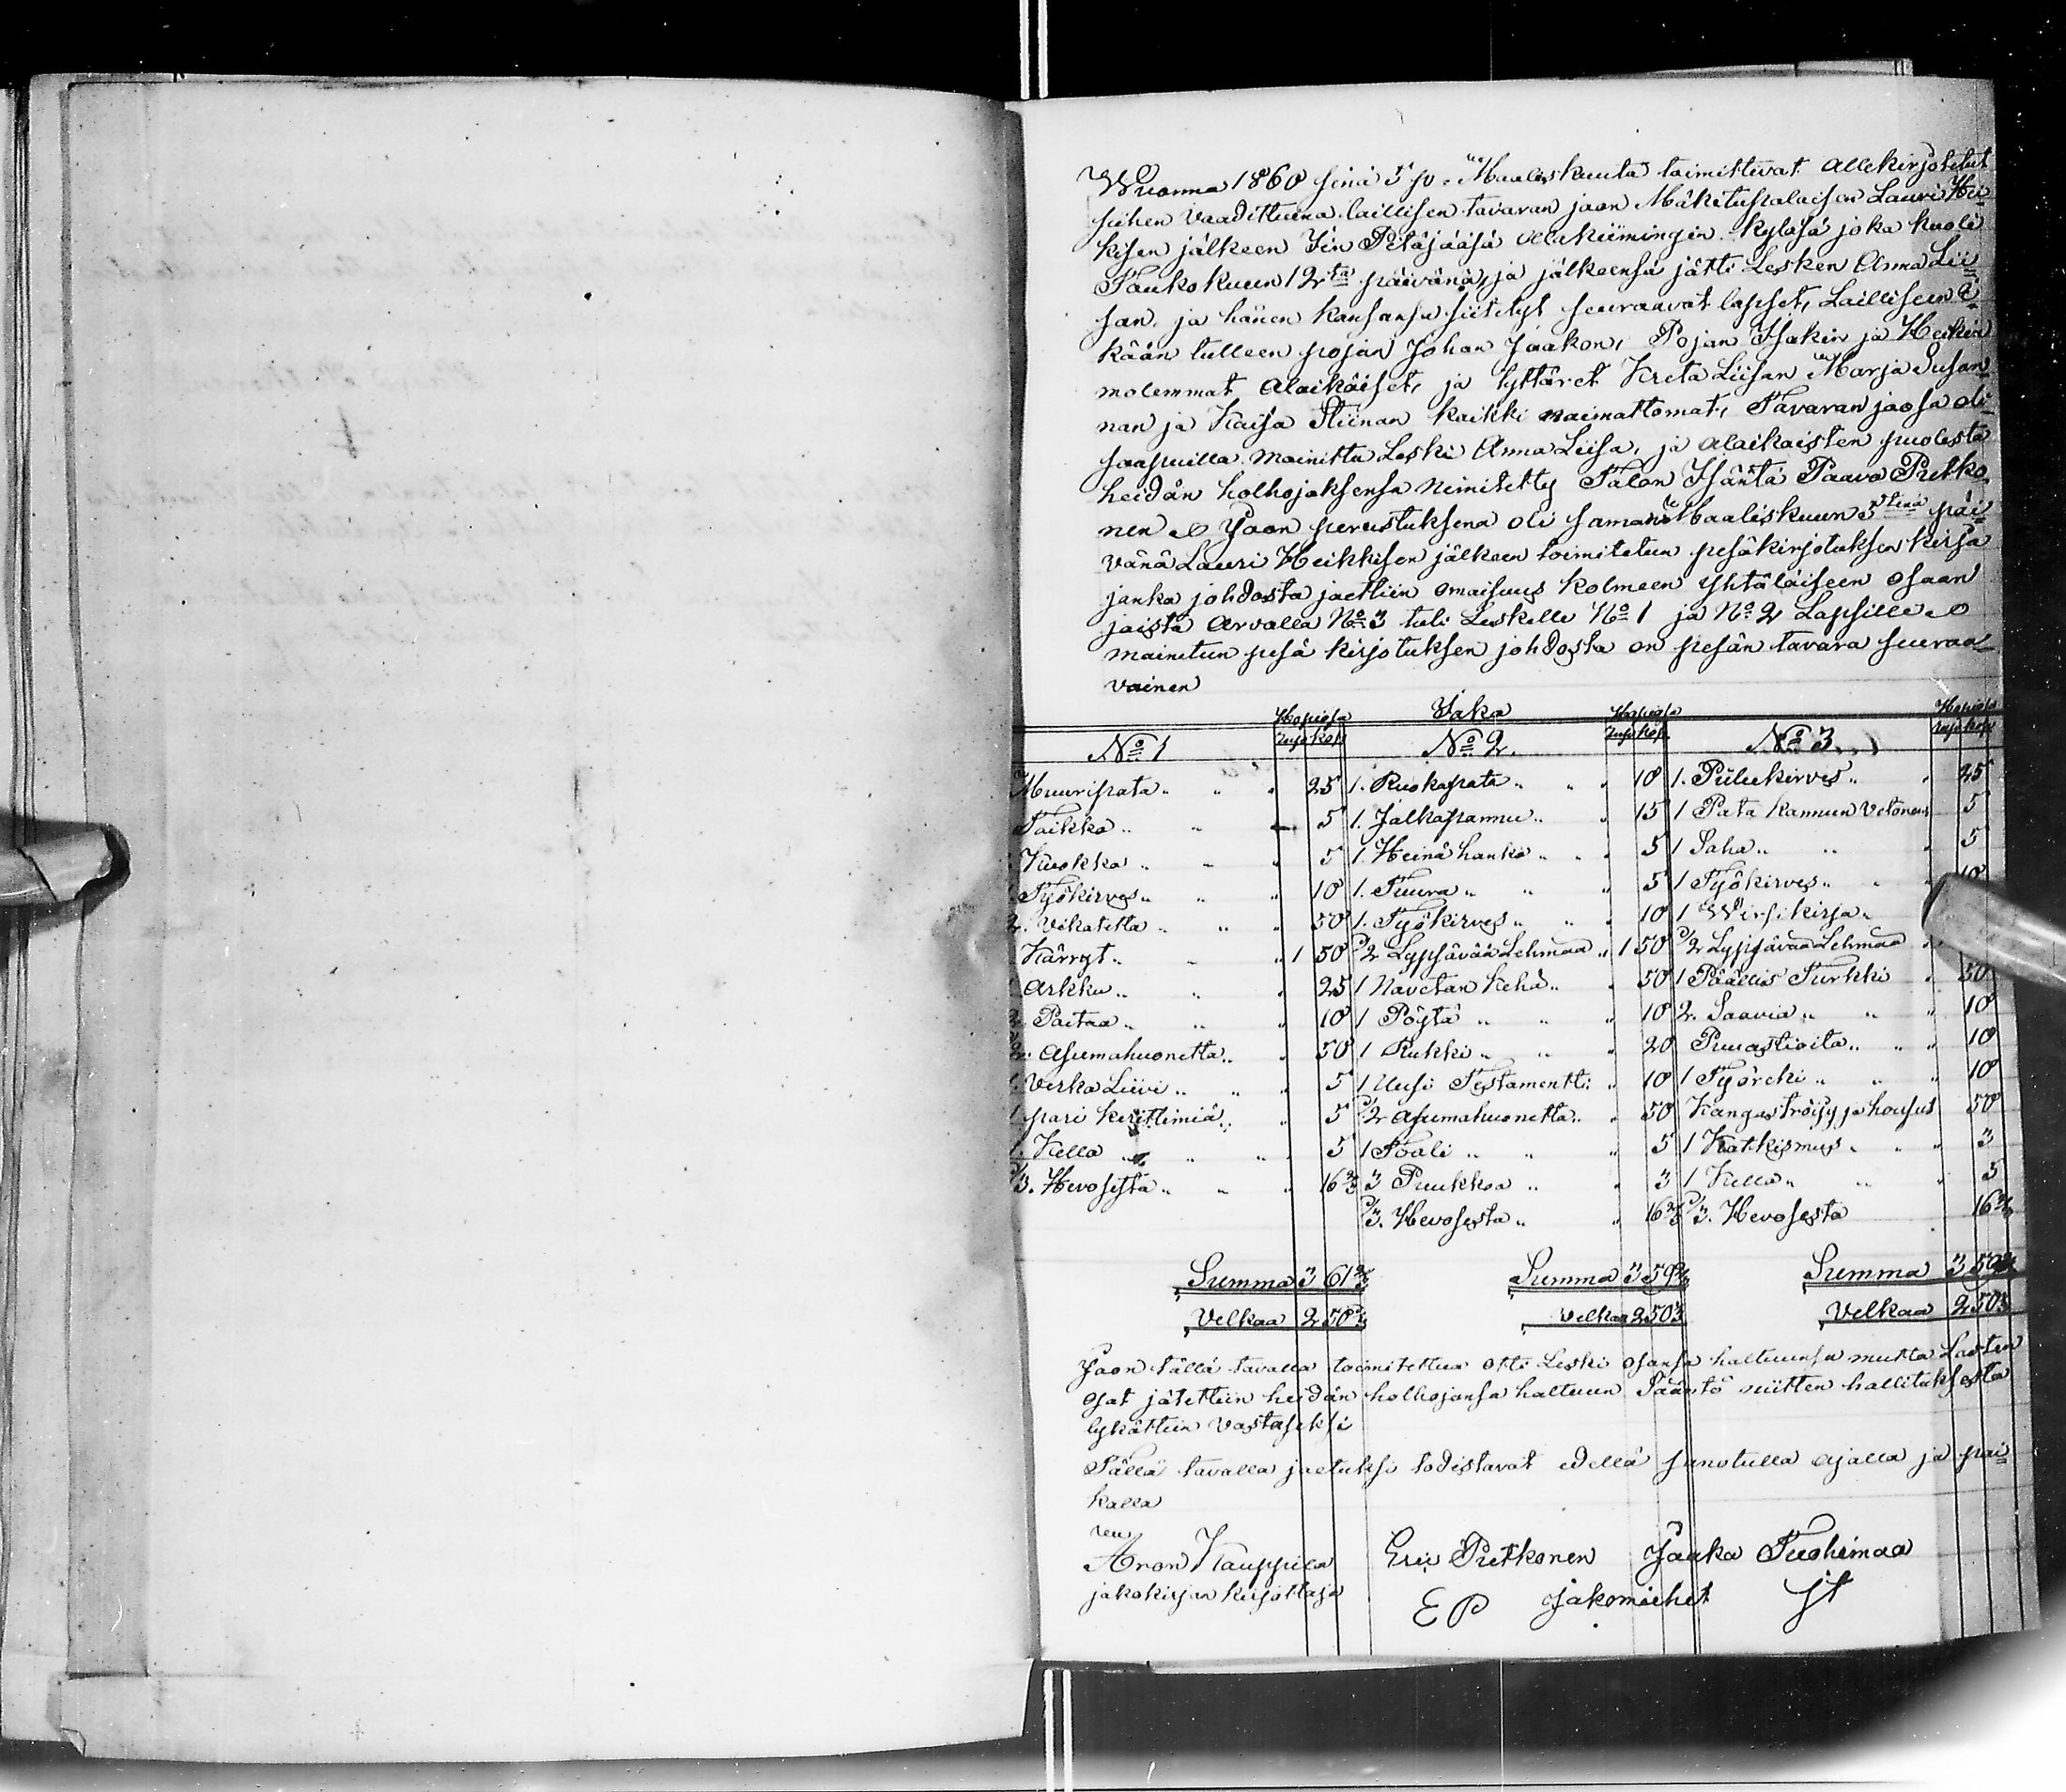 Wuonna 1860 sinä 5 p. Maaliskuuta toimittivat allekirjotetut
siihen vaadittuna laillisen tavaran jaon Mäkitupalaisen Lauri Hei-
kisen jälkeen Iin Petäjäsä Ylikiimingin kyläsä joka kuoli
Toukokuun 12ta päivänä, ja jälkeensä jätti Lesken Anna Lii-
san, ja hänen kansansa siitetyt seuraavat lapset, Lailliseen i-
kään tulleen pojan Johan Jaakon, Pojan Isakin ja Heikin
molemmat alaikäiset, ja tyttäret Kreta Liisan Marja Susan-
nan ja Kaisa Stiinan kaikki naimattomat, Tavaran jaosa oli
saapuilla mainittu Leski Anna Liisa, ja alaikaisten puolesta
heidän holhojaksensa nimitetty Talon Isäntä Paavo Pietko-
nen Jaon perustuksena oli saman Maaliskuun 5tenä päi-
vänä Lauri Heikkisen jälkeen toimitetun pesäkirjotuksen kirja
janka johdosta jaettiin omaisuus kolmeen yhtäläiseen osaan
joista arvalla No 3 tuli Leskelle No 1 ja No 2 Lapsille
mainitun pesä kirjotuksen johdosta on pesän tavara seuraa-
vainen
Hopiasa Jako Hopiasa Hopiasa
No 1 rup kop No 2. rup kop No 3. rup kop
Muuripata 25 1. Ruokapata 10 1. Piilukirves 25
Taikko 5 1. Jalkapannu 15 1 Pata Kannun Vetonen 5
Kuokka 5 1. Heinähanko 5 1 Saha 5
Työkirves 10 1. Tuura 5 1 Työkirves 10
2. Vikatetta 50 1. Työkirves 10 1 Wirsikirja
Kärryt 1 50 1/2 Lypsävää Lehmää 1 50 1/2 Lypsävää Lehmää
1 Arkku 25 1 Navetan kehä 50 1 Päällis Turkki 50
2. Paitaa 10 1 Pöytä 10 2. Saavia 10
1/2. Asumahuonetta 50 1 Rukki 20 Puuastioita 10
1. Verka Liivi 5 1 Uusi Testamentti 10 1 Työreki 10
1 pari keritimiä 5 1/2 Asumahuonetta 50 Kangas tröijy ja housut 50
1. Kello 5 1 Tooli 5 1 Katkismus 3
1/3. Hevosesta 16 2/3 3 Puukkoa 3 1 Kello 5
1/3. Hevosesta 16 2/3 1/3. Hevosesta 16 2/3
Summa 3 61 2/3 Summa 3 59 2/3 Summa 3 59 2/3
Velkaa 2 50 1/3 Velkaa 2 50 1/3 Velkaa 2 50 1/3
Jaon tällä tavalla toimitettua otti Leski osansa haltuunsa mutta Lasten
osat jätettiin heidän holhojansa haltuun Sääntö niitten hallituksesta
lykättiin vastaseksi
Tällä tavalla jaetuksi todistavat edellä sanotulla ajalla ja pai-
kalla
Aron Kauppila Eric Pietkonen Jaako Tuohimaa
jakokirjan kirjottaja E P Jakomiehet J T